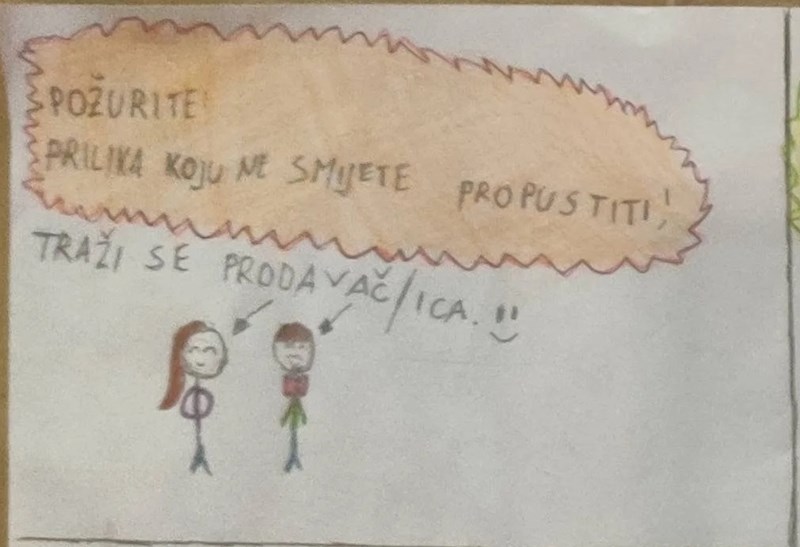 POŽURITE!
PRILIKA KOJU NE SMIJETE PROPUSTITI!
TRAŽI SE PRODAVAČ/ICA. !!